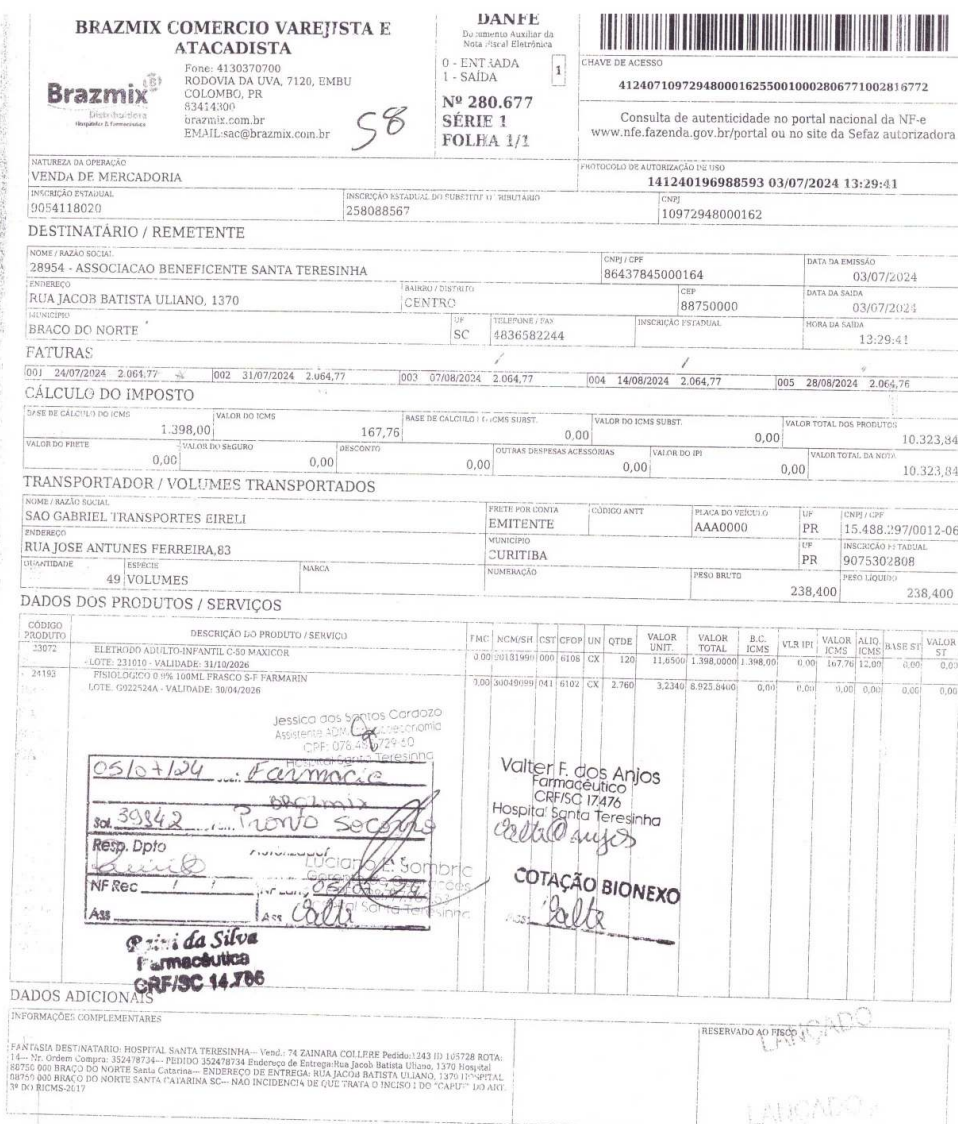 BRAZMIX COMERCIO VAREJISTA E
ATACADISTA
Brazmix
Distribuidora
Hospitalar & Farmacêutica
Fone: 4130370700
RODOVIA DA UVA, 7120, EMBU
COLOMBO, PR
83414300
brazmix.com.br
EMAIL:sac@brazmix.com.br
58
DANFE
Documento Auxiliar da
Nota Fiscal Eletrônica
0 - ENTRADA
1 - SAÍDA
1
Nº 280.677
SÉRIE 1
FOLHA 1/1
CHAVE DE ACESSO
41240710972948000162550010002806771002816772
Consulta de autenticidade no portal nacional da NF-e
www.nfe.fazenda.gov.br/portal ou no site da Sefaz autorizadora
NATUREZA DA OPERAÇÃO
VENDA DE MERCADORIA
PROTOCOLO DE AUTORIZAÇÃO DE USO
141240196988593 03/07/2024 13:29:41
INSCRIÇÃO ESTADUAL
9054118020
INSCRIÇÃO ESTADUAL DO SUBSTITUTO TRIBUTÁRIO
258088567
CNPJ
10972948000162
DESTINATÁRIO / REMETENTE
NOME / RAZÃO SOCIAL
28954 - ASSOCIACAO BENEFICENTE SANTA TERESINHA
CNPJ / CPF
86437845000164
DATA DA EMISSÃO
03/07/2024
ENDEREÇO
RUA JACOB BATISTA ULIANO, 1370
BAIRRO / DISTRITO
CENTRO
CEP
88750000
DATA DA SAIDA
03/07/2024
MUNICIPIO
BRACO DO NORTE
UF
SC
TELEFONE / FAX
4836582244
INSCRIÇÃO ESTADUAL
HORA DA SAÍDA
13:29:41
FATURAS
001 24/07/2024 2.064,77 002 31/07/2024 2.064,77 003 07/08/2024 2.064,77 004 14/08/2024 2.064,77 005 28/08/2024 2.064,76
CÁLCULO DO IMPOSTO
BASE DE CÁLCULO DO ICMS
1.398,00
VALOR DO ICMS
167,76
BASE DE CALCULO DO ICMS SUBST.
0,00
VALOR DO ICMS SUBST.
0,00
VALOR TOTAL DOS PRODUTOS
10.323,84
VALOR DO FRETE
0,00
VALOR DO SEGURO
0,00
DESCONTO
0,00
OUTRAS DESPESAS ACESSÓRIAS
0,00
VALOR DO IPI
0,00
VALOR TOTAL DA NOTA
10.323,84
TRANSPORTADOR / VOLUMES TRANSPORTADOS
NOME / RAZÃO SOCIAL
SAO GABRIEL TRANSPORTES EIRELI
FRETE POR CONTA
EMITENTE
CÓDIGO ANTT
PLACA DO VEÍCULO
AAA0000
UF
PR
CNPJ / CPF
15.488.297/0012-06
ENDEREÇO
RUA JOSE ANTUNES FERREIRA,83
MUNICÍPIO
CURITIBA
UF
PR
INSCRIÇÃO ESTADUAL
9075302808
QUANTIDADE
49
ESPÉCIE
VOLUMES
MARCA
NUMERAÇÃO
PESO BRUTO
238,400
PESO LÍQUIDO
238,400
DADOS DOS PRODUTOS / SERVIÇOS
CÓDIGO PRODUTO DESCRIÇÃO DO PRODUTO / SERVIÇO FMC NCM/SH CST CFOP UN QTDE VALOR UNIT. VALOR TOTAL B.C. ICMS VLR IPI VALOR ICMS ALIQ. ICMS BASE ST VALOR ST
23072 ELETRODO ADULTO-INFANTIL C-50 MAXICOR 0,00 000 6108 CX 120 11,6500 1.398,0000 1.398,00 0,00 167,76 12,00 0,00 0,00
LOTE: 231010 - VALIDADE: 31/10/2026
24193 FISIOLOGICO 0.9% 100ML FRASCO S-F FARMARIN 0,00 30049099 041 6102 CX 2.760 3,2340 8.925,8400 0,00 0,00 0,00 0,00 0,00 0,00
LOTE: G922524A - VALIDADE: 30/04/2026
Jessica dos Santos Cardozo
Hospital Santa Teresinha
05/07/24 Farmacia
Brazmix
Sol. 39842 Pronto Socorro
Resp. Dpto
Luciano
NF Rec / /
05/07/24
Ass
Ass Valter
Valter F. dos Anjos
Farmacêutico
CRF/SC 17.476
Hospital Santa Teresinha
COTAÇÃO BIONEXO
Ass: Valter
da Silva
Farmacêutica
CRF/SC 14.786
DADOS ADICIONAIS
INFORMAÇÕES COMPLEMENTARES
RESERVADO AO FISCO
LANÇADO
FANTASIA DESTINATARIO: HOSPITAL SANTA TERESINHA--- Vend.: 74 ZAINARA COLLERE Pedido:1243 ID 105728 ROTA:
14--- Nr. Ordem Compra: 352478734--- PEDIDO 352478734 Endereço de Entrega:Rua Jacob Batista Uliano, 1370 Hospital
88750 000 BRAÇO DO NORTE Santa Catarina--- ENDEREÇO DE ENTREGA: RUA JACOB BATISTA ULIANO, 1370 HOSPITAL
88750 000 BRAÇO DO NORTE SANTA CATARINA SC--- NAO INCIDENCIA DE QUE TRATA O INCISO I DO "CAPUT" DO ART.
3º DO RICMS-2017
LANÇADO